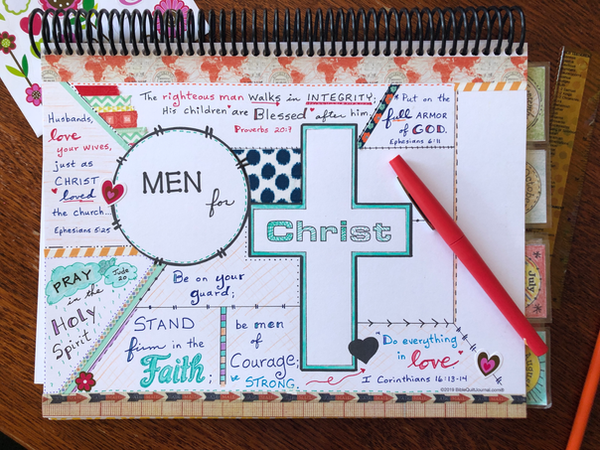 The righteous man walks in INTEGRITY;
His children are Blessed after him.
Proverbs 20:7
Husbands,
love
your wives,
just as
CHRIST
loved
the church...
Ephesians 5:25
MEN
for
Christ
* Put on the
full ARMOR
of GOD.
Ephesians 6:11
PRAY
in the
Holy
Spirit
Jude
20
Be on your
guard;
STAND
firm in the
Faith;
be men
of
Courage;
STRONG.
"Do everything
in
love."
I Corinthians 16:13-14
July